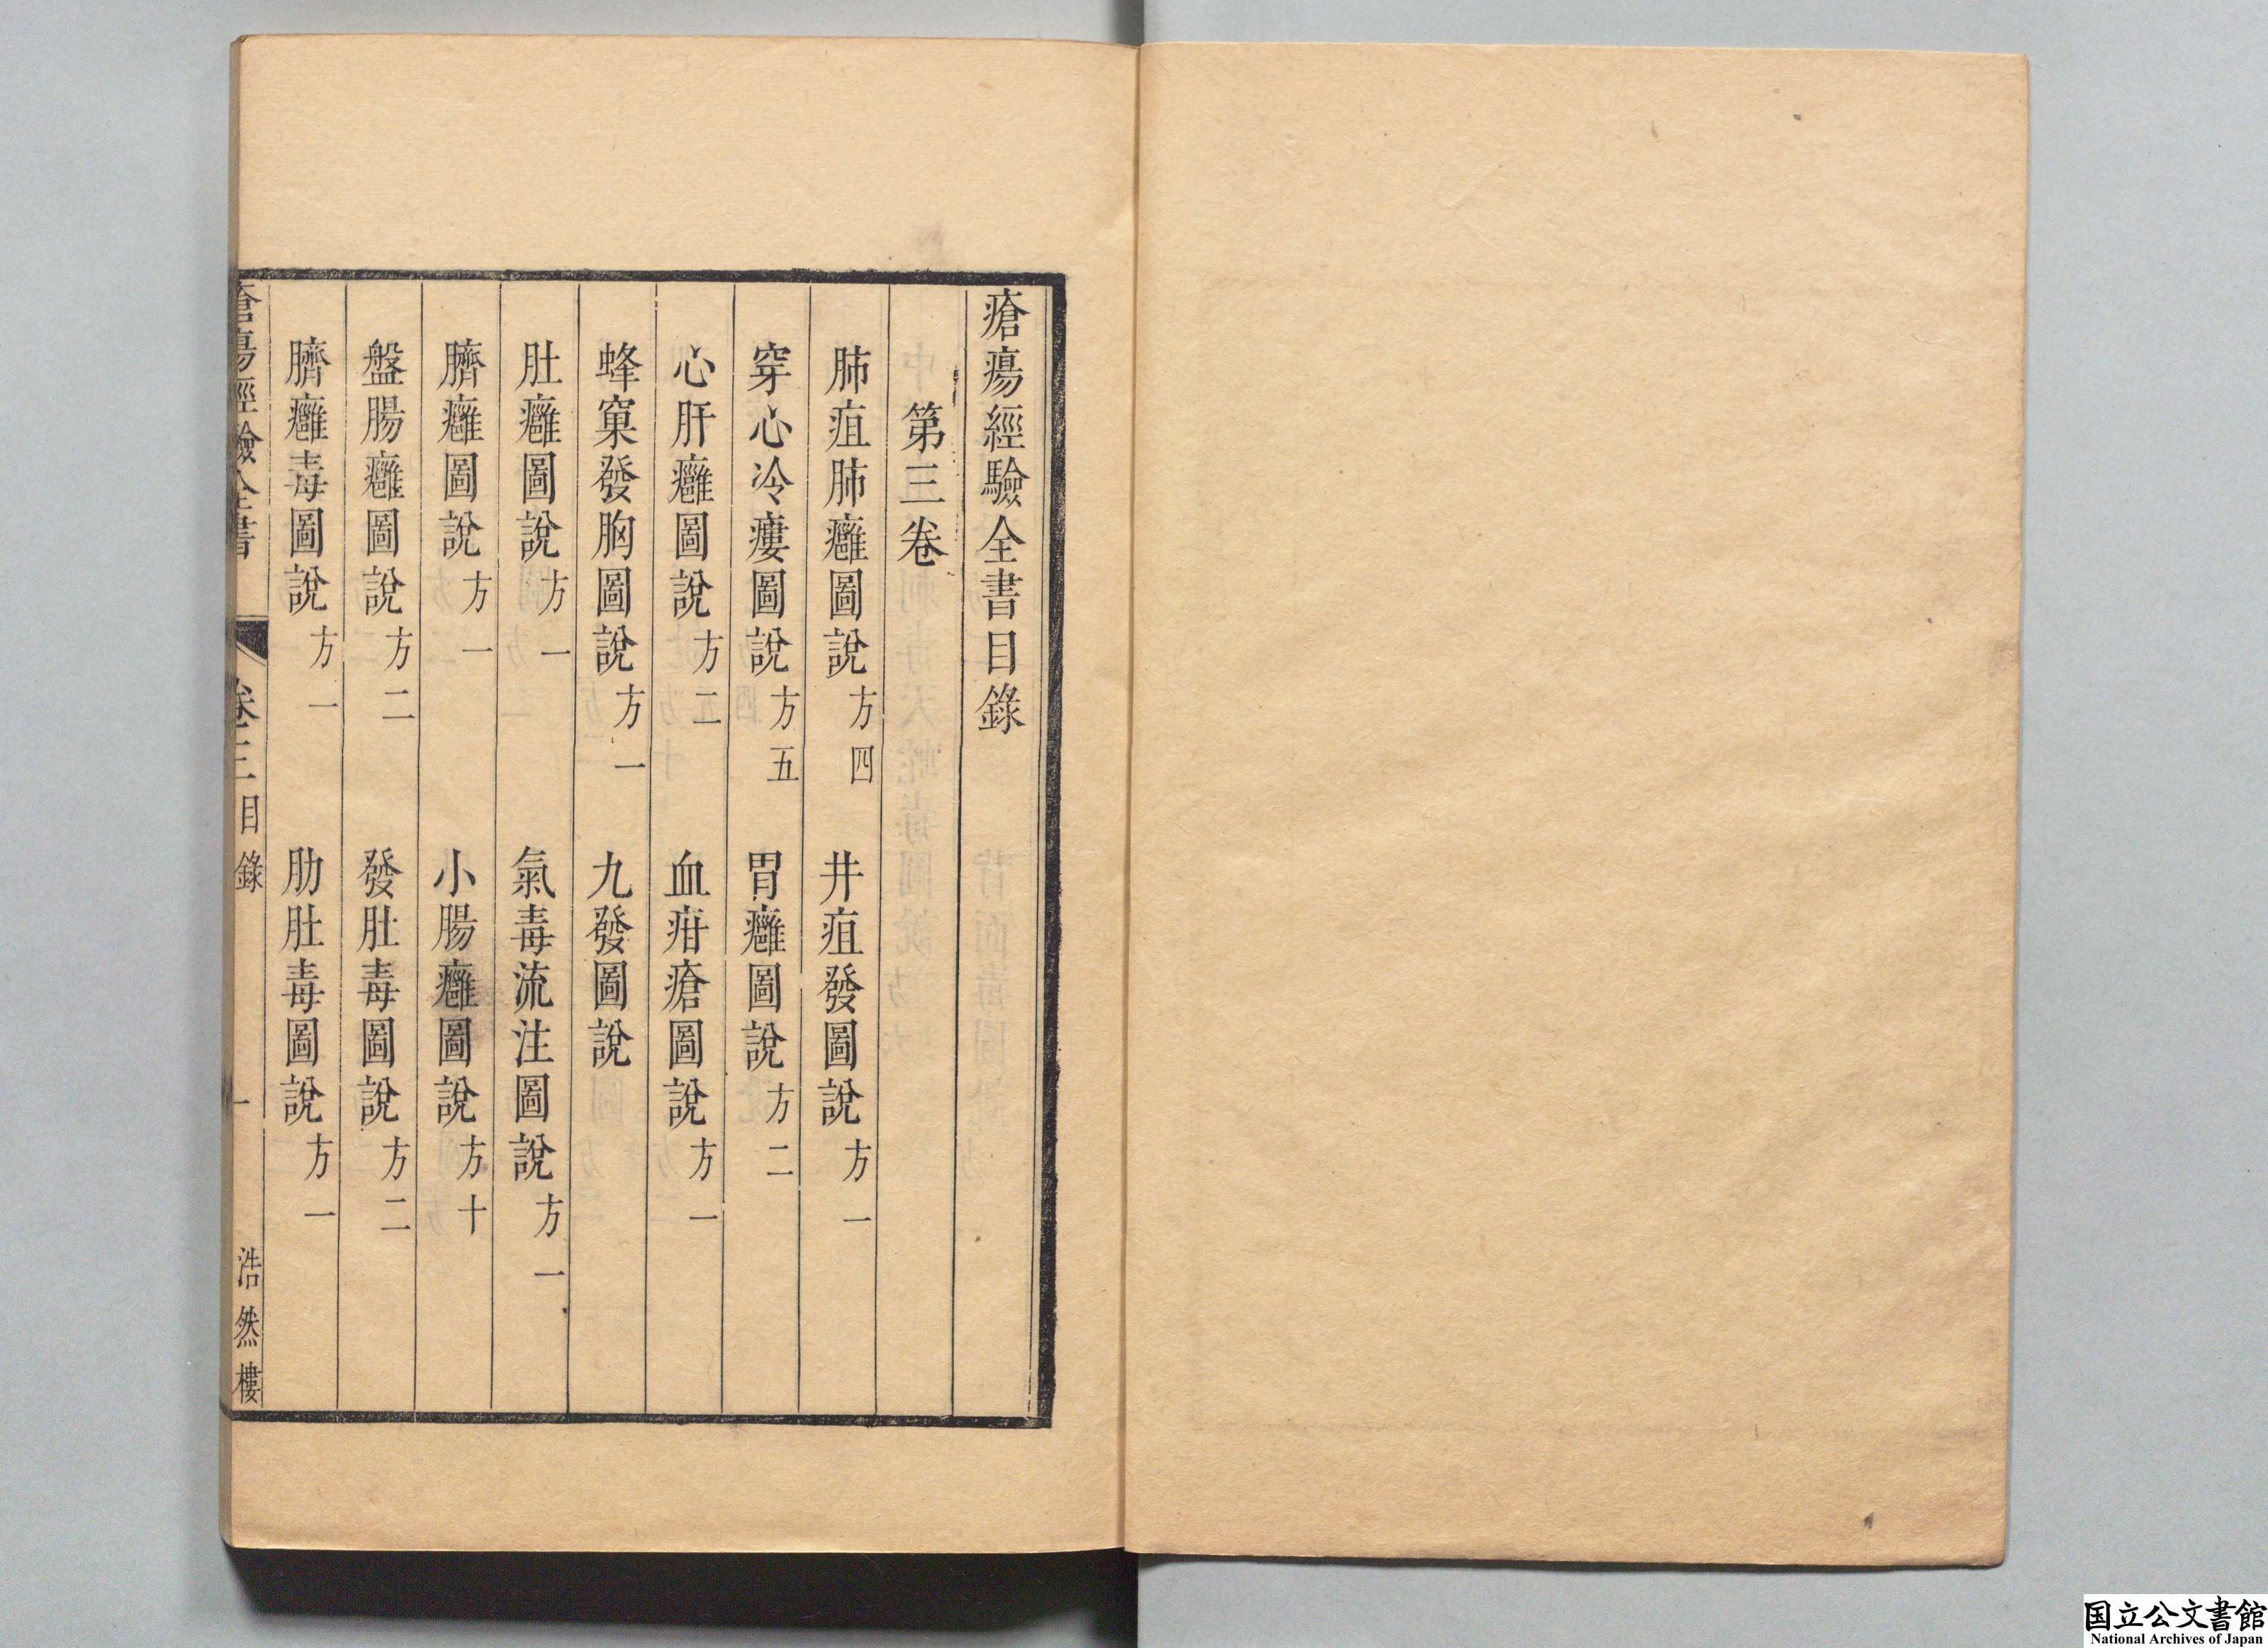 瘡瘍經驗全書目錄
第三卷
肺疽肺癰圖說方四　井疽發圖說方一
穿心冷瘻圖說方五　胃癰圖說方二
心肝癰圖說方二　血疳瘡圖說方一
蜂窠發胸圖說方一　九發圖說
肚癰圖說方一　氣毒流注圖說方一
臍癰圖說方一　小腸癰圖說方十
盤腸癰圖說方二　發肚毒圖說方二
臍癰毒圖說方一　肋肚毒圖說方一
瘡瘍經驗全書　卷三目錄　一　浩然樓
国立公文書館
National Archives of Japan